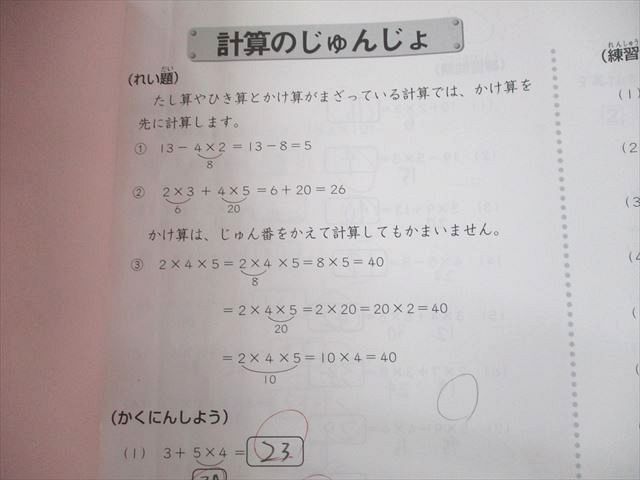 計算のじゅんじょ
(れい題)
たし算やひき算とかけ算がまざっている計算では、かけ算を
先に計算します。
① 13－4×2＝13－8＝5
8
② 2×3＋4×5＝6＋20＝26
6 20
かけ算は、じゅん番をかえて計算してもかまいません。
③ 2×4×5＝2×4×5＝8×5＝40
8
＝2×4×5＝2×20＝20×2＝40
20
＝2×4×5＝10×4＝40
10
(かくにんしよう)
(1) 3＋5×4＝23
20
(練習
(1)
(2
(3
(4